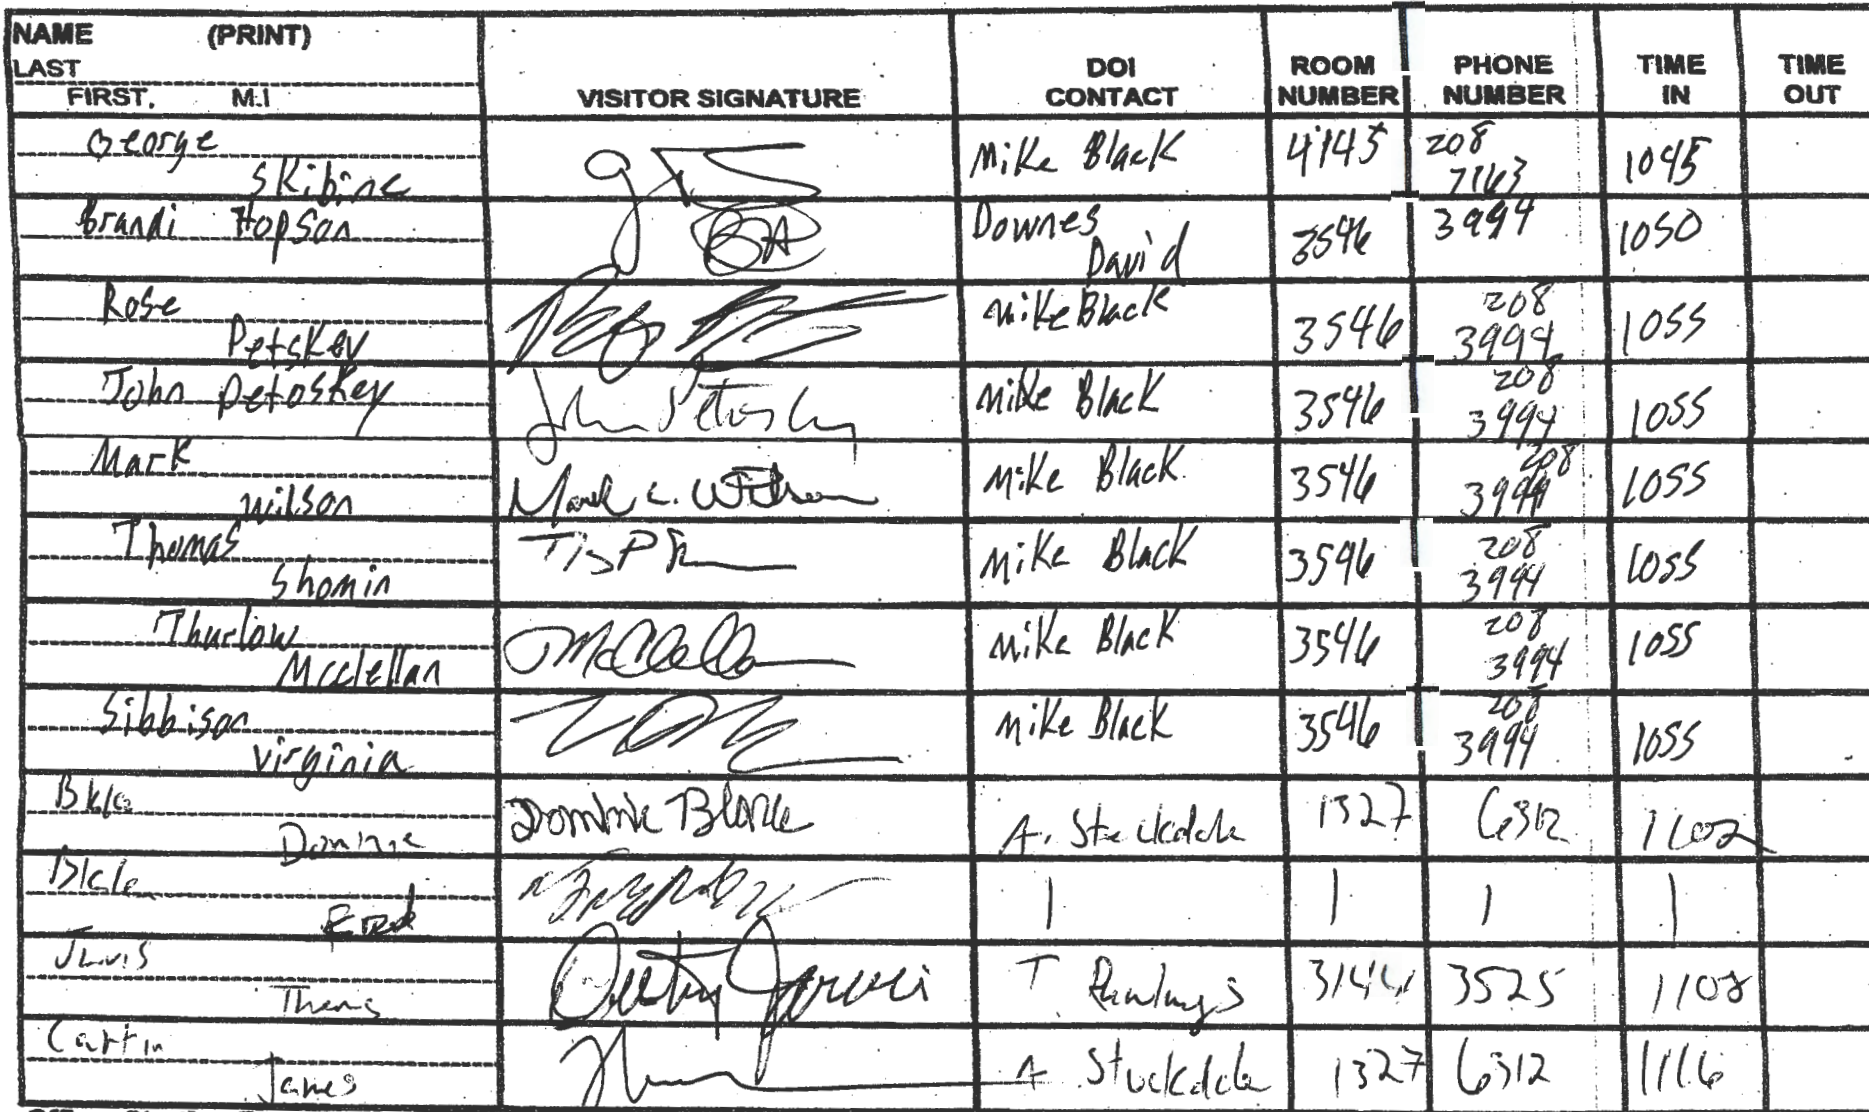 NAME (PRINT)
LAST
FIRST, M.I
VISITOR SIGNATURE
DOI CONTACT
ROOM NUMBER
PHONE NUMBER
TIME IN
TIME OUT
George Skibine Mike Black 4145 208 7163 1045
Brandi Hopson Downes David 3546 3994 1050
Rose Petskey Mike Black 3546 208 3994 1055
John Petoskey John Petoskey Mike Black 3546 208 3994 1055
Mark Wilson Mark L. Wilson Mike Black 3546 208 3994 1055
Thomas Shomin Mike Black 3546 208 3994 1055
Thurlow Mcclellan TMcClellan Mike Black 3546 208 3994 1055
Sibbison Virginia Mike Black 3546 208 3994 1055
Dominic A. Stuckdale 1327 6312 1102
Fred
T 3144 3525 1102
James A Stuckdale 1327 6312 1116